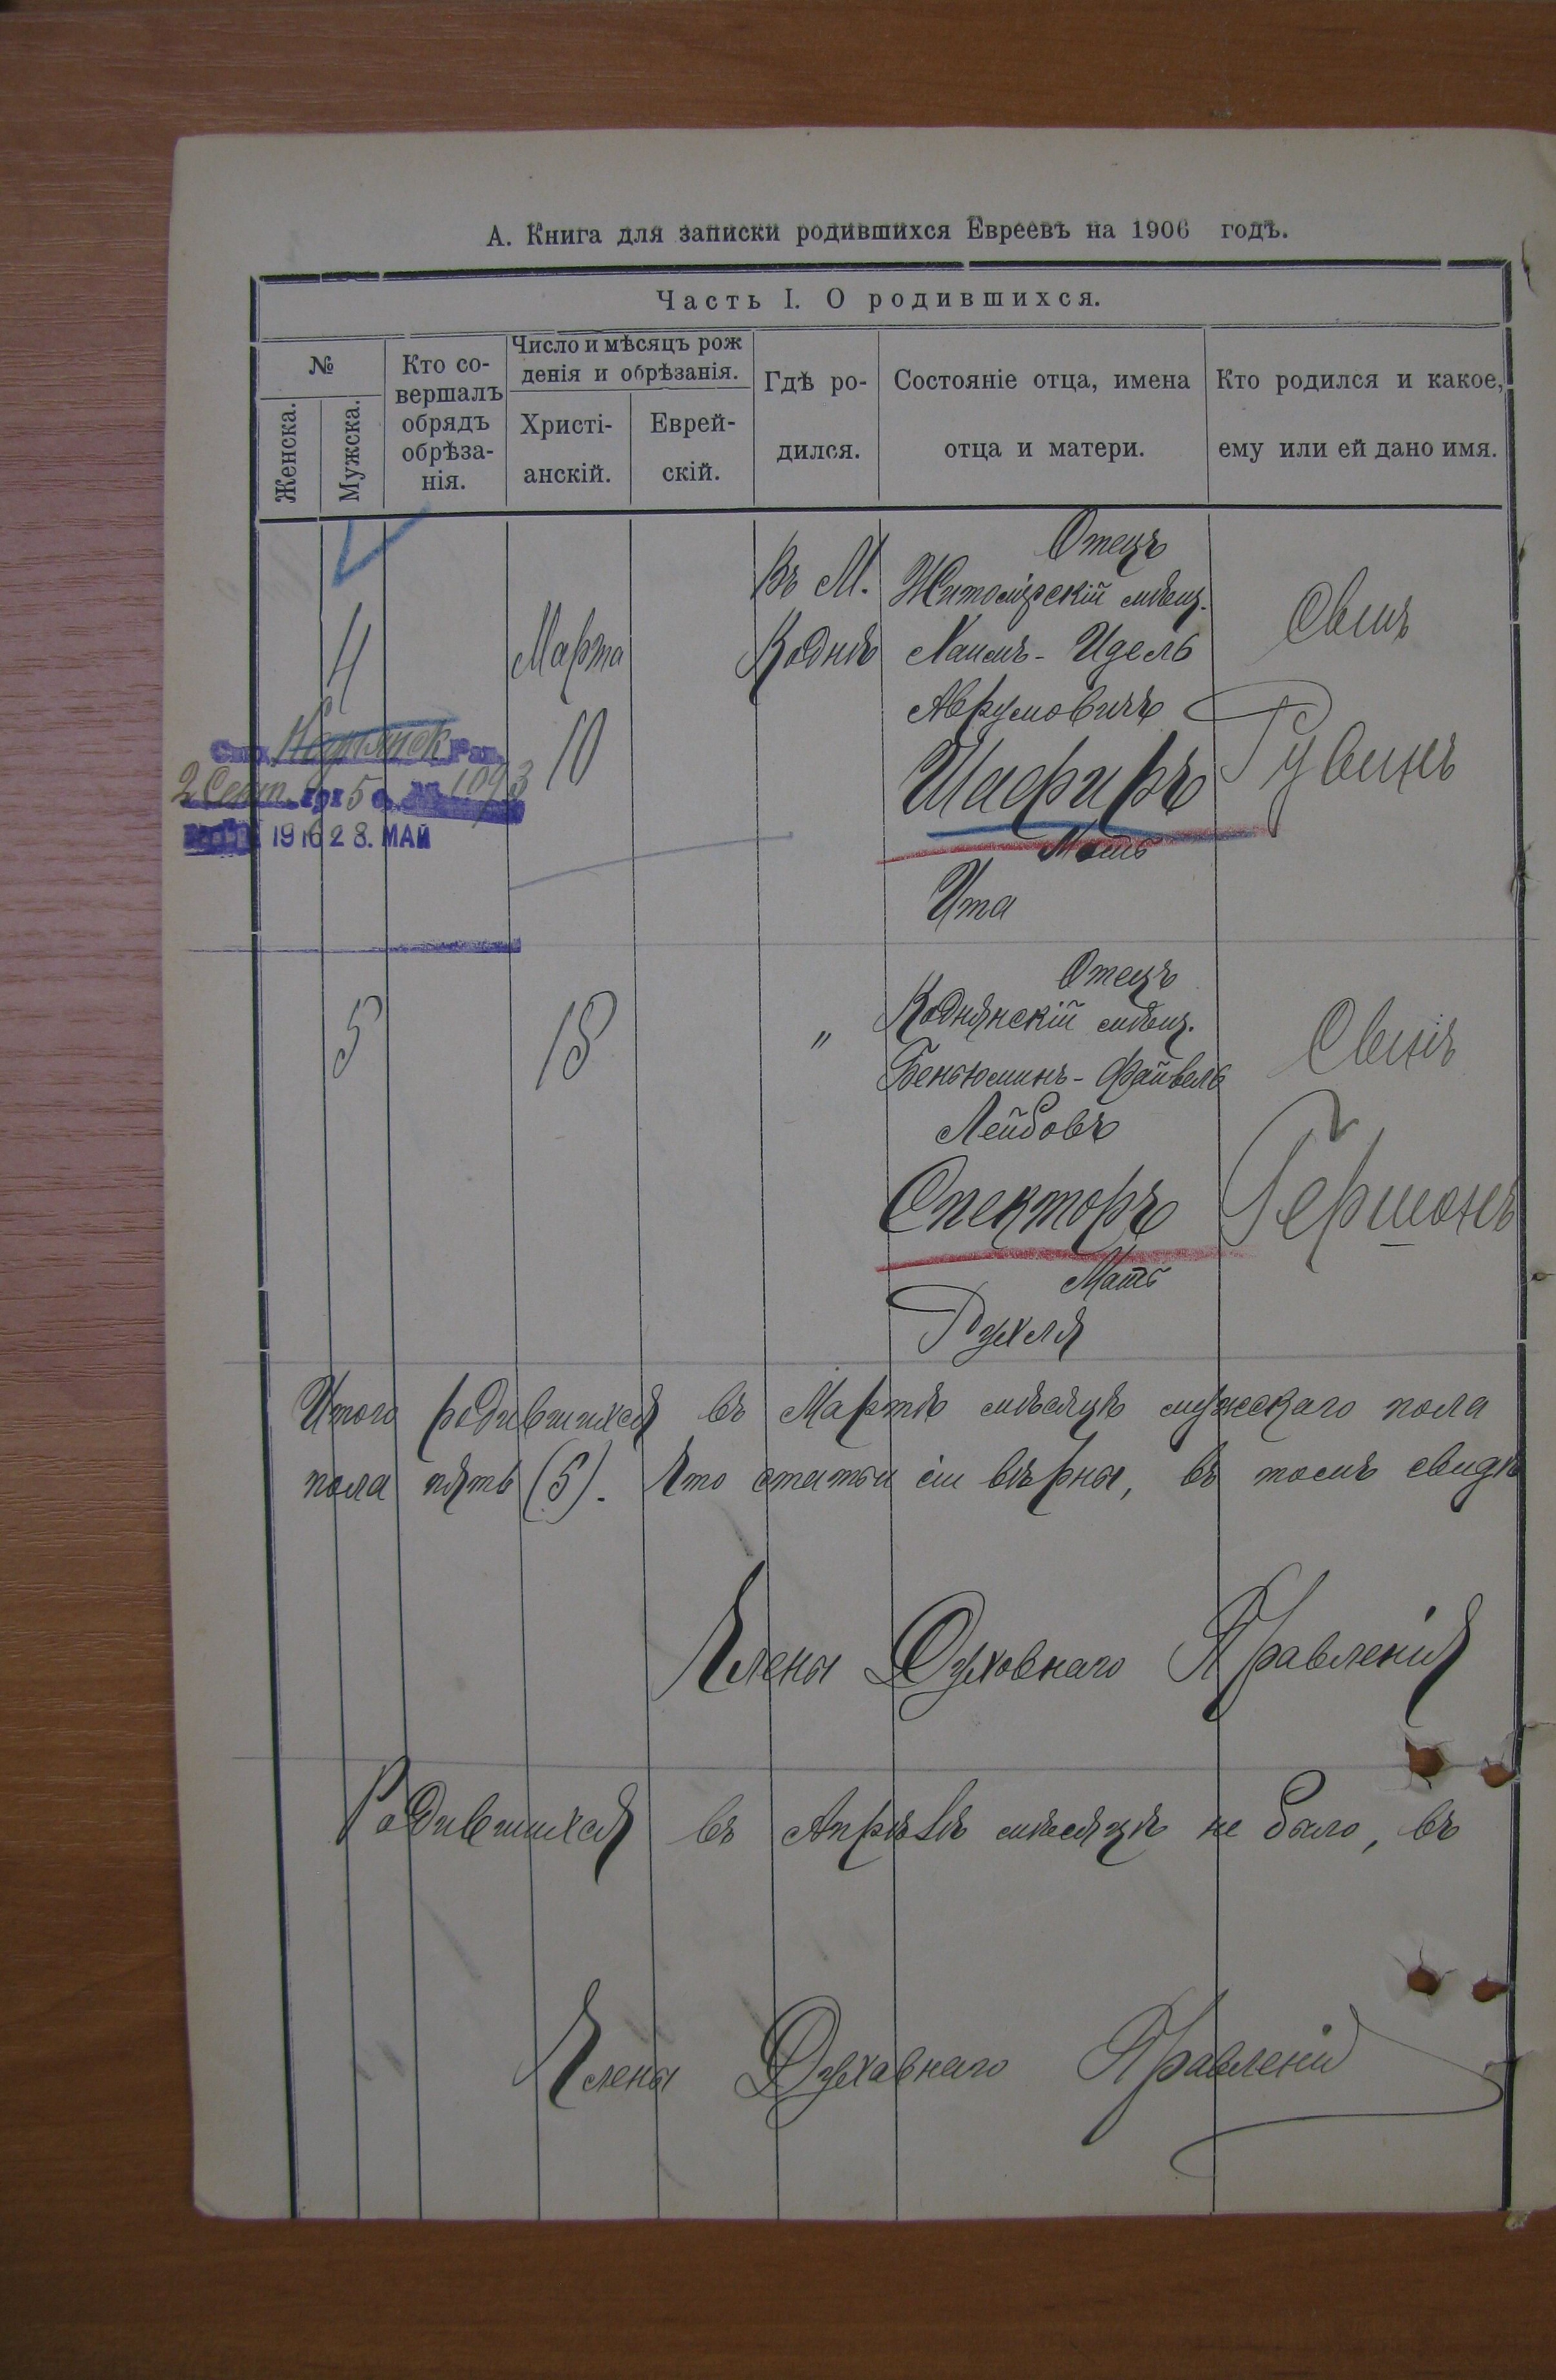 А. Книга для записки родившихся Евреевъ на 1906 годъ.
Часть I. О родившихся.
№
Женска.
Мужска.
Кто со-
вершалъ
обрядъ
обрѣза-
нія.
Число и мѣсяцъ рож
денія и обрѣзанія.
Христі-
анскій.
Еврей-
скій.
Гдѣ ро-
дился.
Состояніе отца, имена
отца и матери.
Кто родился и какое,
ему или ей дано имя.
4
Марта
10
Въ М.
Коднѣ
Отецъ
Житомірскій мѣщ.
Хаимъ-Идель
Аврумовичъ
Шафиръ
Мать
Ита
Сынъ
Рувинъ
2 Сент. 1915 1093
1916 28. МАЙ
5
18
"
Отецъ
Коднянскій мѣщ.
Беньюминъ-Файвель
Лейбовъ
Спекторъ
Мать
Рухля
Сынъ
Гершонъ
Итого родившихся въ Мартѣ мѣсяцѣ мужескаго пола
пола пять (5). Что статьи сіи вѣрны, въ томъ свидѣ
Члены Духовнаго Правленія
Родившихся въ Апрѣлѣ мѣсяцѣ не было, въ
Члены Духавнаго Правленія